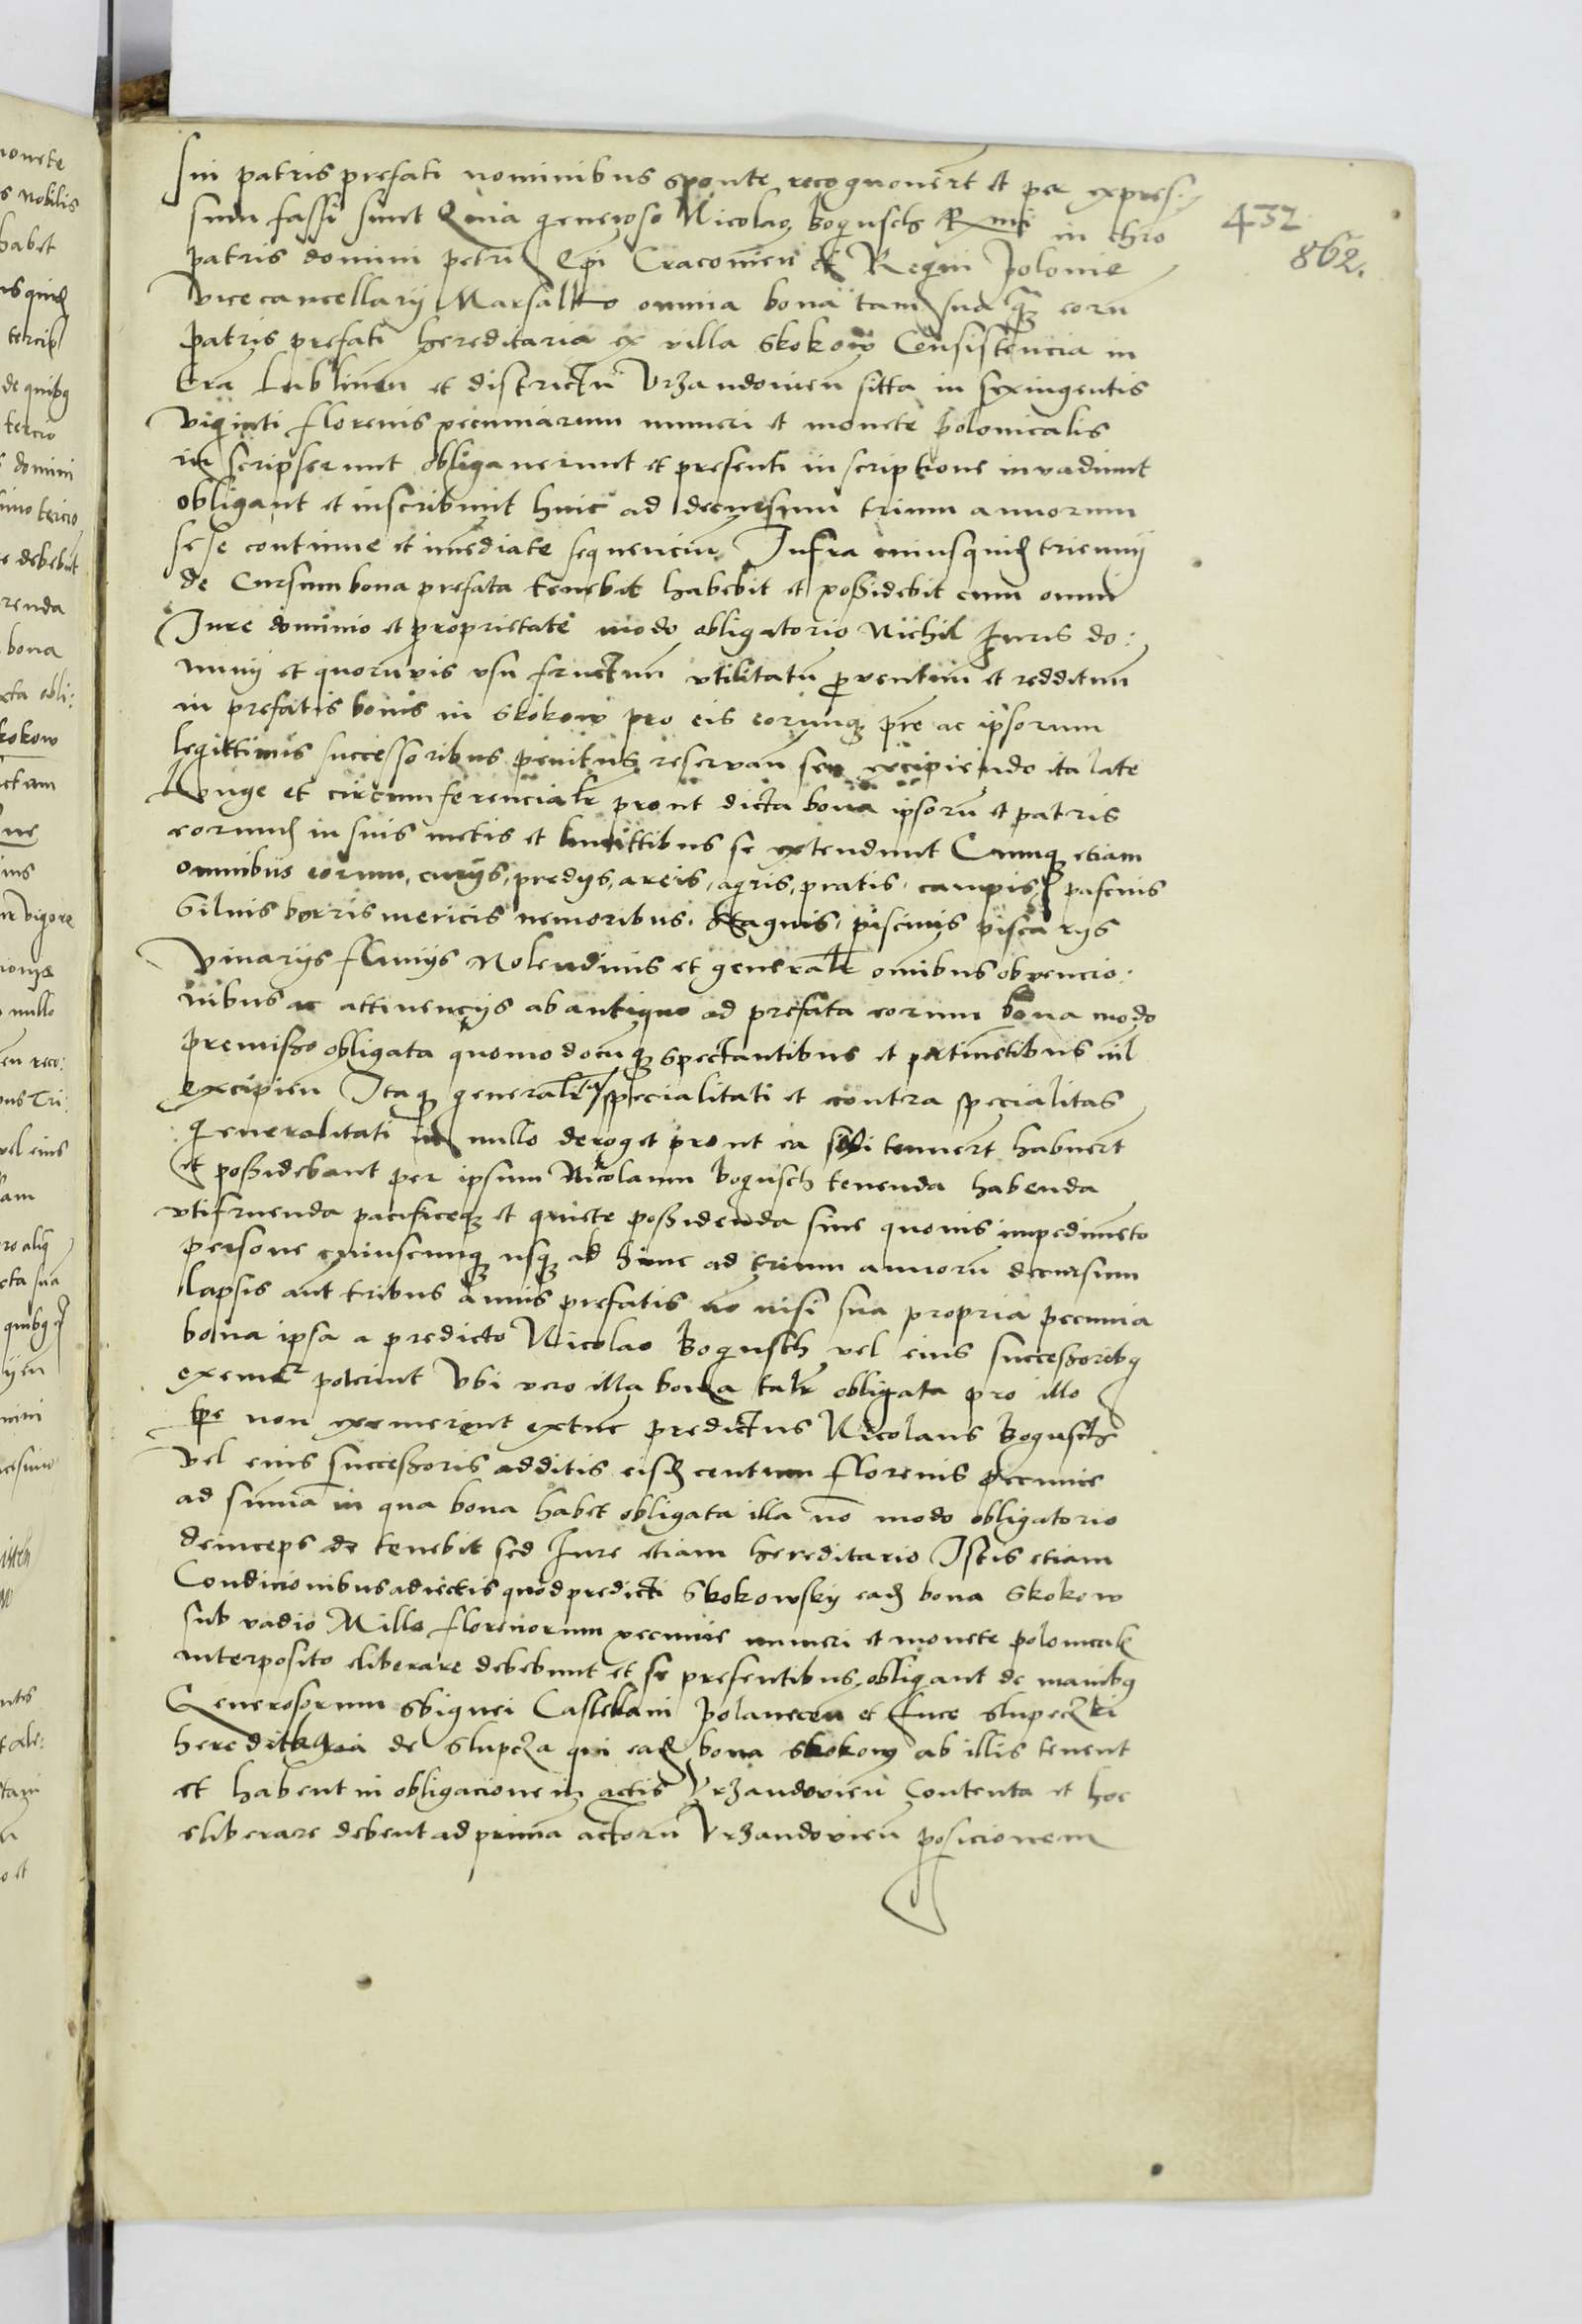 sui patris prefati nominibus sponte recognoverṫ et per expres:
sum fassi sunt Quia generoso Nicolao Bogusch Rmi in chro
patris domini petri Epi Cracovien et Regni Polonie
Vicecancellarij Marsalko omnia bona tam sua q̃ eorũ
patris prefati hereditaria ex villa Skokow Consistencia in
terra Lublinen et districtu Vrzandovien sitta in sexingentis
viginti florenis pecuniarum numeri et monete polonicalis
inscripserunt obligaverunt et presenti inscriptione invadiunt
obligant et inscribunt huic ad decursum trium annorum
sese continue et imediate sequenciũ Infra cuiusquid triennij
de Cursum bona prefata tenebit habebit et possidebit cum omni
Iure dominio et proprietate modo obligatorio Nichil Iuris do:
minij et quorumvis usu fructum utilitatũ proventum et reddituum
in prefatis bonis in Skokow pro eis eorumq pre ac ipsorum
legittimis successoribus penitus reservan seu excipiendo ita late
longe et circumferencialr prout dicta bona ipsorũ et patris
eorund in suis metis et limittibus se extendunt Cumq etiam
omnibus eorum, curijs, predijs, areis, agris, pratis, campis, pascuis
Silvis borris mericis nemoribus. stagnis, piscinis piscarijs
Vinarijs fluvijs Molendinis et generalr omnibus obvencio:
nibus ac attinencijs ab antiquo ad prefata eorum bona modo
premisso obligata quomodocũq spectantibus et pertinetibus nil
excipien Itaq generalitas specialitati et contra specialitas
generalitati in nullo deroget prout ea sibi tenuerṫ habuerṫ
et possidebant per ipsum Nicolaum Bogusch tenenda habenda
utifruenda pacificeq et quiete possidenda sine quovis impedimeto
persone cuiuscumq usq ab hinc ad trium annorũ decursum
lapsis aut tribus annis prefatis nõ nisi sua propria pecunia
bona ipsa a predicto Nicolao Bogusch vel eius successoribq
exemer poterint Ubi vero illa bona talr obligata pro illo
tpe non exemerint extunc predictus Nicolaus Bogusch
vel eius successoris additis eisd centum florenis pecunie
ad sumã in qua bona habet obligata illa nõ modo obligatorio
deinceps de tenebit sed Iure etiam hereditario Istis etiam
Condicionibus adiectis quod predicti Skokowsky ead bona Skokow
sub vadio Mille florenorum pecunie numeri et monete polonical
interposito eliberare debebunt et se presentibus obligant de manibq
Generosorum Sbignei Castellani Polanecen et Luce Slupeczki
de Slupcza qui ead bona Skokow ab illis tenent
et habent in obligacione in actis Vrzandovien contenta et hoc
eliberare debent ad primã actorũ Vrzandovien posicionem
432
862.